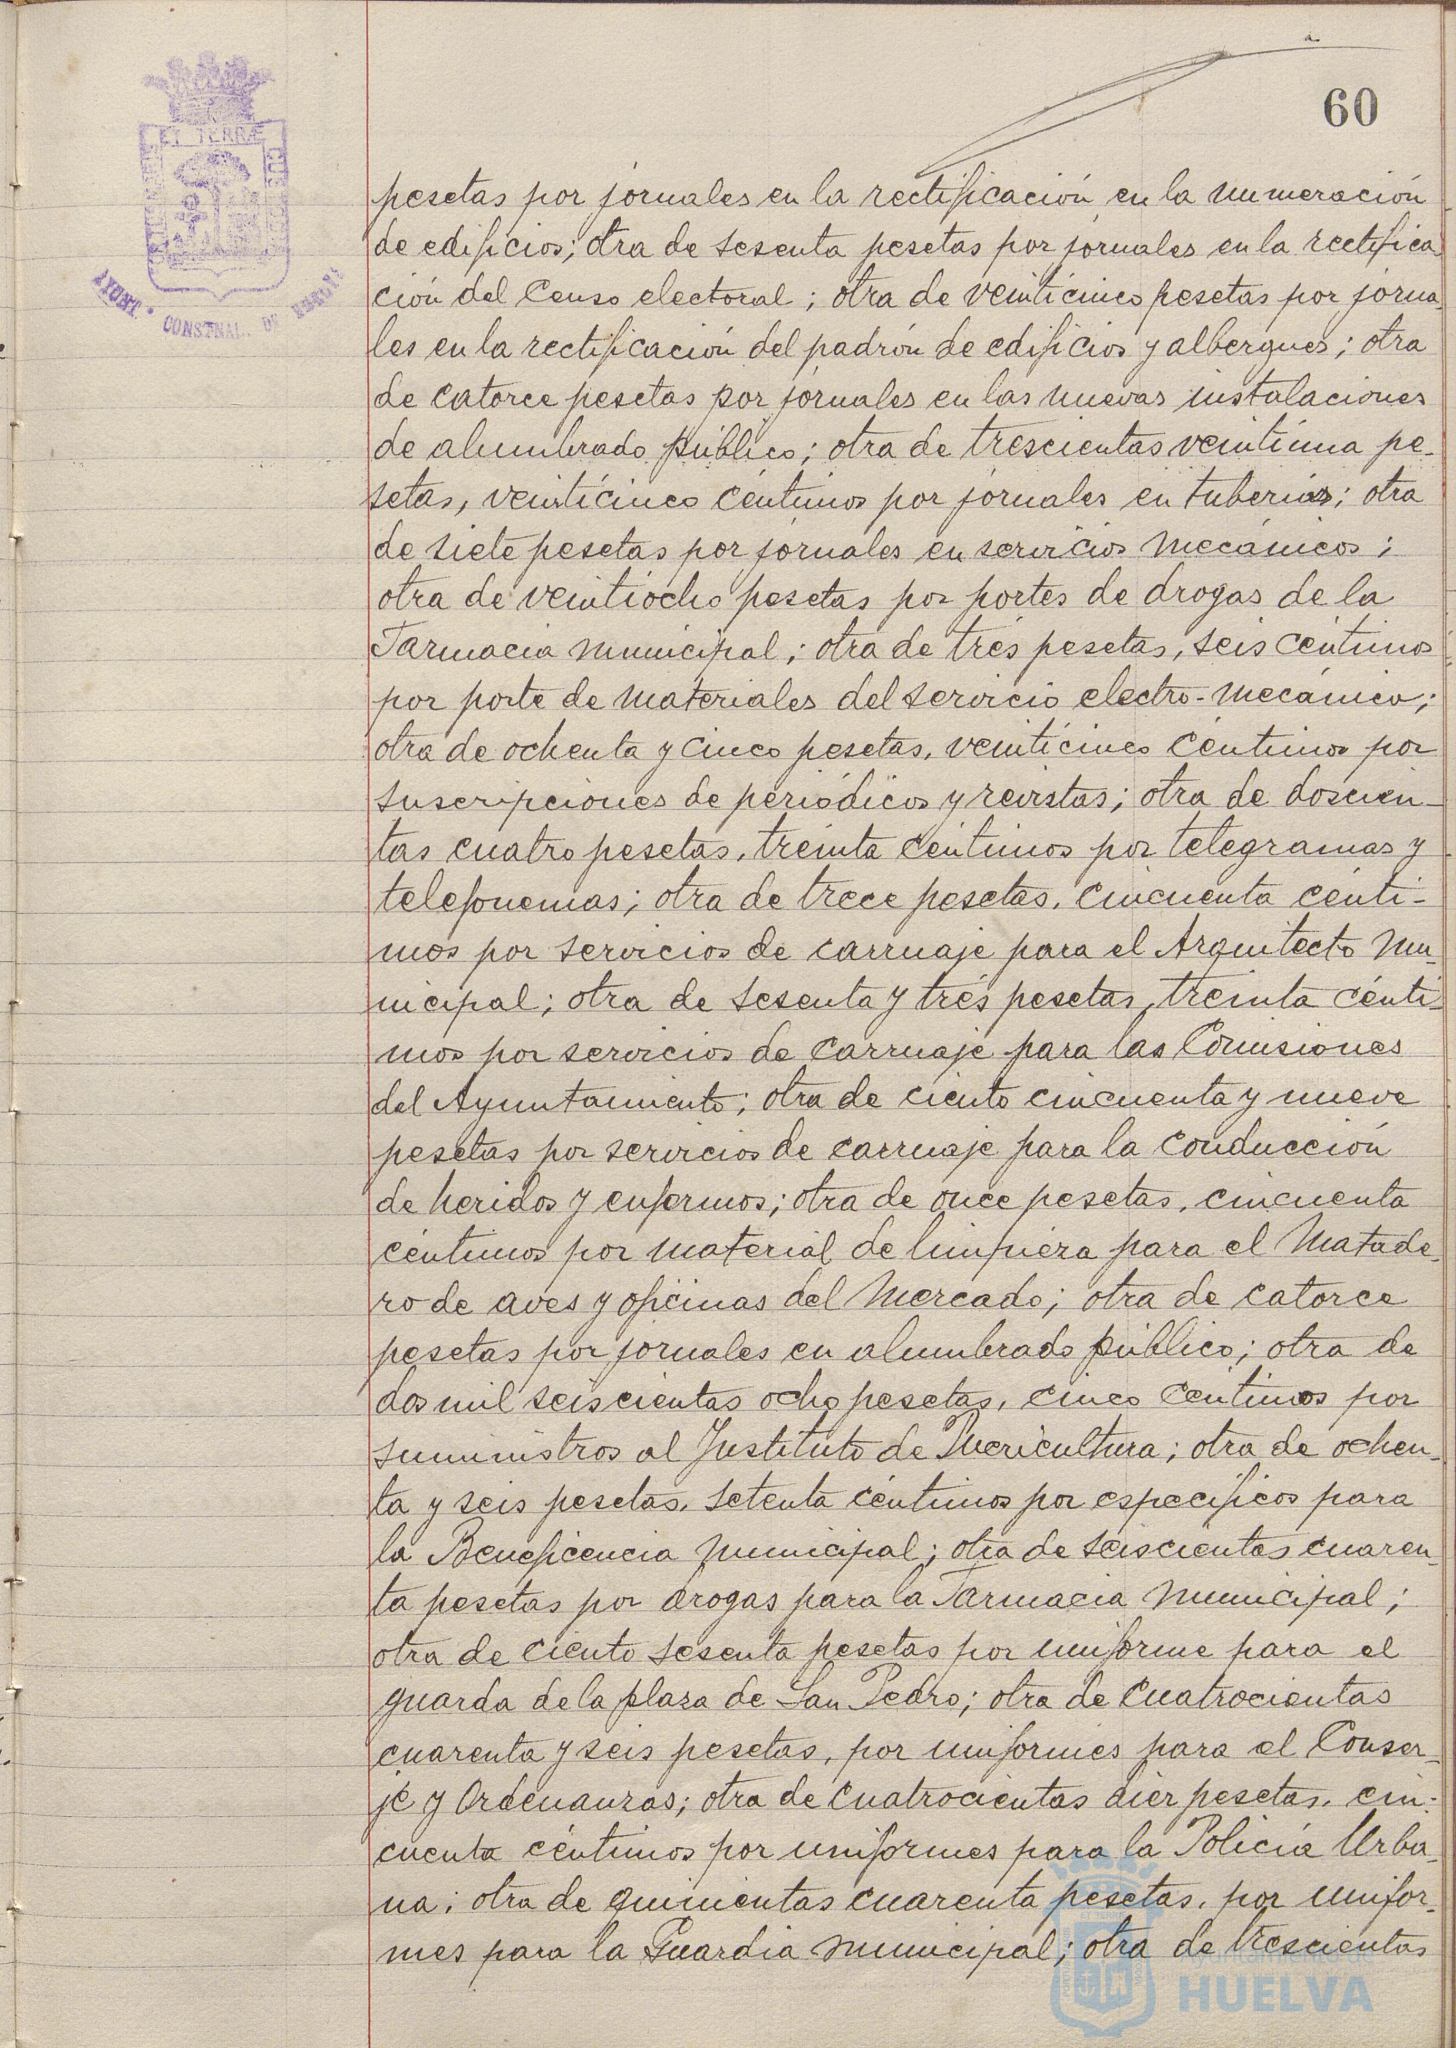 60
ET TERRÆ
AYUNT. CONSTNAL. DE HUELVA
pesetas por jornales en la rectificación en la numeración
de edificios; otra de sesenta pesetas por jornales en la rectifica
ción del Censo electoral; otra de veinticinco pesetas por jorna-
les en la rectificación del padrón de edificios y albergues; otra
de catorce pesetas por jornales en las nuevas instalaciones
de alumbrado público; otra de trescientas veintiuna pe-
setas, veinticinco céntimos por jornales en tuberias; otra
de siete pesetas por jornales en servicios mecánicos;
otra de veintiocho pesetas por portes de drogas de la
Farmacia municipal; otra de tres pesetas, seis céntimos
por porte de materiales del servicio electro-mecánico;
otra de ochenta y cinco pesetas, veinticinco céntimos por
suscripciones de periódicos y revistas; otra de doscien-
tas cuatro pesetas, treinta céntimos por telegramas y
telefonemas; otra de trece pesetas, cincuenta cénti-
mos por servicios de carruaje para el Arquitecto Mu-
nicipal; otra de sesenta y tres pesetas, treinta cénti
mos por servicios de carruaje para las Comisiones
del Ayuntamiento; otra de ciento cincuenta y nueve
pesetas por servicios de carruaje para la conducción
de heridos y enfermos; otra de once pesetas, cincuenta
céntimos por material de limpieza para el Matade-
ro de aves y oficinas del Mercado; otra de catorce
pesetas por jornales en alumbrado público; otra de
dos mil seiscientas ocho pesetas, cinco centimos por
suministros al Instituto de Puericultura; otra de ochen-
ta y seis pesetas, setenta céntimos por especificos para
la Beneficencia municipal; otra de seiscientas cuaren-
ta pesetas por drogas para la Farmacia municipal;
otra de ciento sesenta pesetas por uniforme para el
guarda de la plaza de San Pedro; otra de cuatrocientas
cuarenta y seis pesetas, por uniformes para el Conser-
je y Ordenanzas; otra de cuatrocientas diez pesetas, cin-
cuenta céntimos por uniformes para la Policía Urba-
na; otra de quinientas cuarenta pesetas, por unifor-
mes para la Guardia municipal; otra de trescientas
Ayuntamiento de
HUELVA